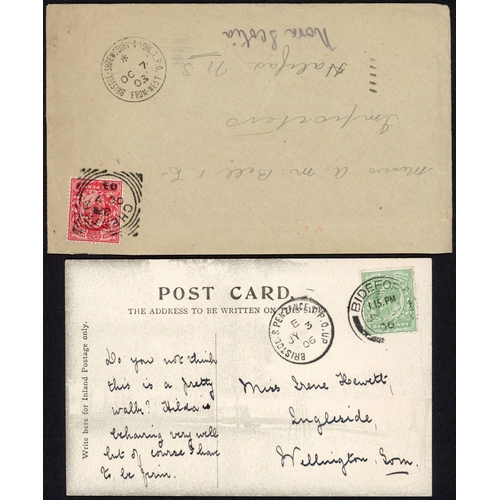 Nova Scotia
Halifax N S
Importers
Messrs A. M. Bell & Co
FROM WEST
OC 7
03
POST CARD.
THE ADDRESS TO BE WRITTEN ON THIS SIDE
Write here for Inland Postage only.
BRISTOL & PENZANCE T.P.O. UP
E
JY 3
06
BIDEFORD
1.15 PM
JY
06
Do you not think
this is a pretty
walk? Hilda is
behaving very well
but of course I have
to be firm.
Miss Irene Hewett,
Ingleside,
Wellington, Som.